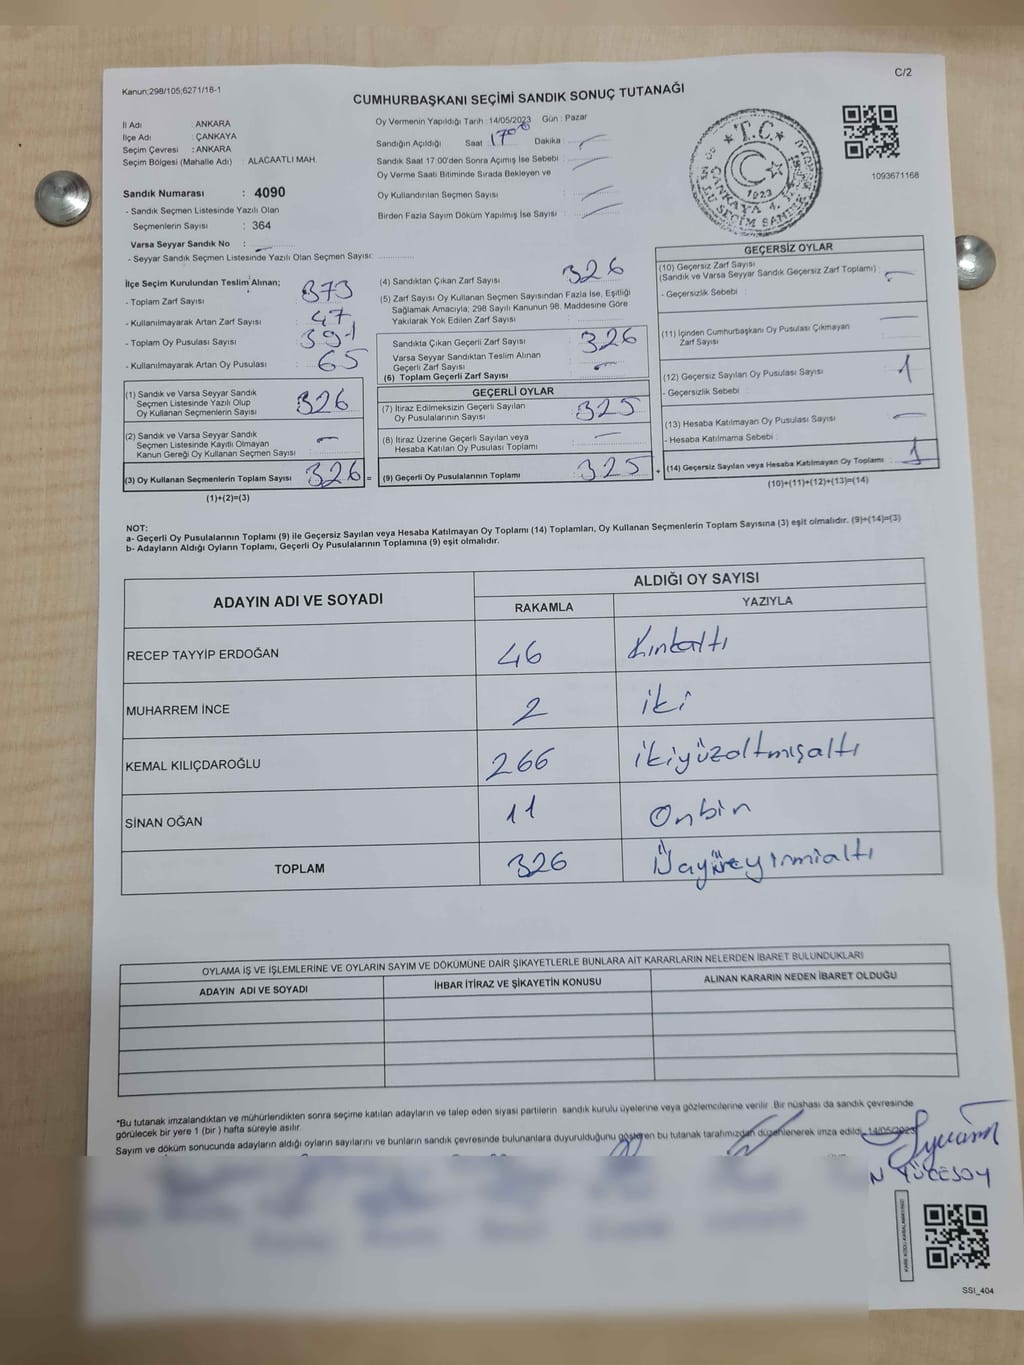 C/2
Kanun;298/105;6271/18-1
CUMHURBAŞKANI SEÇİMİ SANDIK SONUÇ TUTANAĞI
İl Adı : ANKARA
İlçe Adı : ÇANKAYA
Seçim Çevresi : ANKARA
Seçim Bölgesi (Mahalle Adı) : ALACAATLI MAH.
Sandık Numarası : 4090
- Sandık Seçmen Listesinde Yazılı Olan
Seçmenlerin Sayısı : 364
Varsa Seyyar Sandık No :
- Seyyar Sandık Seçmen Listesinde Yazılı Olan Seçmen Sayısı:
Oy Vermenin Yapıldığı Tarih : 14/05/2023 Gün : Pazar
Sandığın Açıldığı Saat : 17:00 Dakika :
Sandık Saat 17.00'den Sonra Açımış İse Sebebi :
Oy Verme Saati Bitiminde Sırada Bekleyen ve
Oy Kullandırılan Seçmen Sayısı :
Birden Fazla Sayım Döküm Yapılmış İse Sayısı :
T.C.
1923
1093671168
İlçe Seçim Kurulundan Teslim Alınan;
- Toplam Zarf Sayısı : 373
- Kullanılmayarak Artan Zarf Sayısı : 47
- Toplam Oy Pusulası Sayısı : 391
- Kullanılmayarak Artan Oy Pusulası : 65
(1) Sandık ve Varsa Seyyar Sandık
Seçmen Listesinde Yazılı Olup
Oy Kullanan Seçmenlerin Sayısı : 326
(2) Sandık ve Varsa Seyyar Sandık
Seçmen Listesinde Kayıtlı Olmayan
Kanun Gereği Oy Kullanan Seçmen Sayısı : –
(3) Oy Kullanan Seçmenlerin Toplam Sayısı : 326 =
(1)+(2)=(3)
(4) Sandıktan Çıkan Zarf Sayısı : 326
(5) Zarf Sayısı Oy Kullanan Seçmen Sayısından Fazla İse, Eşitliği
Sağlamak Amacıyla; 298 Sayılı Kanunun 98. Maddesine Göre
Yakılarak Yok Edilen Zarf Sayısı :
Sandıkta Çıkan Geçerli Zarf Sayısı : 326
Varsa Seyyar Sandıktan Teslim Alınan
Geçerli Zarf Sayısı : –
(6) Toplam Geçerli Zarf Sayısı :
GEÇERLİ OYLAR
(7) İtiraz Edilmeksizin Geçerli Sayılan
Oy Pusulalarının Sayısı : 325
(8) İtiraz Üzerine Geçerli Sayılan veya
Hesaba Katılan Oy Pusulaları Toplamı : –
(9) Geçerli Oy Pusulalarının Toplamı : 325 +
GEÇERSİZ OYLAR
(10) Geçersiz Zarf Sayısı
(Sandık ve Varsa Seyyar Sandık Geçersiz Zarf Toplamı) : –
- Geçersizlik Sebebi :
(11) İçinden Cumhurbaşkanı Oy Pusulası Çıkmayan
Zarf Sayısı : –
(12) Geçersiz Sayılan Oy Pusulası Sayısı : 1
- Geçersizlik Sebebi :
(13) Hesaba Katılmayan Oy Pusulası Sayısı : –
- Hesaba Katılmama Sebebi :
(14) Geçersiz Sayılan veya Hesaba Katılmayan Oy Toplamı : 1
(10)+(11)+(12)+(13)=(14)
NOT:
a- Geçerli Oy Pusulalarının Toplamı (9) ile Geçersiz Sayılan veya Hesaba Katılmayan Oy Toplamı (14) Toplamları, Oy Kullanan Seçmenlerin Toplam Sayısına (3) eşit olmalıdır. (9)+(14)=(3)
b- Adayların Aldığı Oyların Toplamı, Geçerli Oy Pusulalarının Toplamına (9) eşit olmalıdır.
ADAYIN ADI VE SOYADI
ALDIĞI OY SAYISI
RAKAMLA YAZIYLA
RECEP TAYYİP ERDOĞAN 46 Kırkaltı
MUHARREM İNCE 2 iki
KEMAL KILIÇDAROĞLU 266 ikiyüzaltmışaltı
SİNAN OĞAN 11 Onbir
TOPLAM 326 Üçyüzyirmialtı
OYLAMA İŞ VE İŞLEMLERİNE VE OYLARIN SAYIM VE DÖKÜMÜNE DAİR ŞİKAYETLERLE BUNLARA AİT KARARLARIN NELERDEN İBARET BULUNDUKLARI
ADAYIN ADI VE SOYADI İHBAR İTİRAZ VE ŞİKAYETİN KONUSU ALINAN KARARIN NEDEN İBARET OLDUĞU
*Bu tutanak imzalandıktan ve mühürlendikten sonra seçime katılan adayların ve talep eden siyasi partilerin sandık kurulu üyelerine veya gözlemcilerine verilir. Bir nüshası da sandık çevresinde
görülecek bir yere 1 (bir) hafta süreyle asılır.
Sayım ve döküm sonucunda adayların aldığı oyların sayılarını ve bunların sandık çevresinde bulunanlara duyurulduğunu gösteren bu tutanak tarafımızdan düzenlenerek imza edildi. 14/05/2023
N YÜCESOY
SSI_404